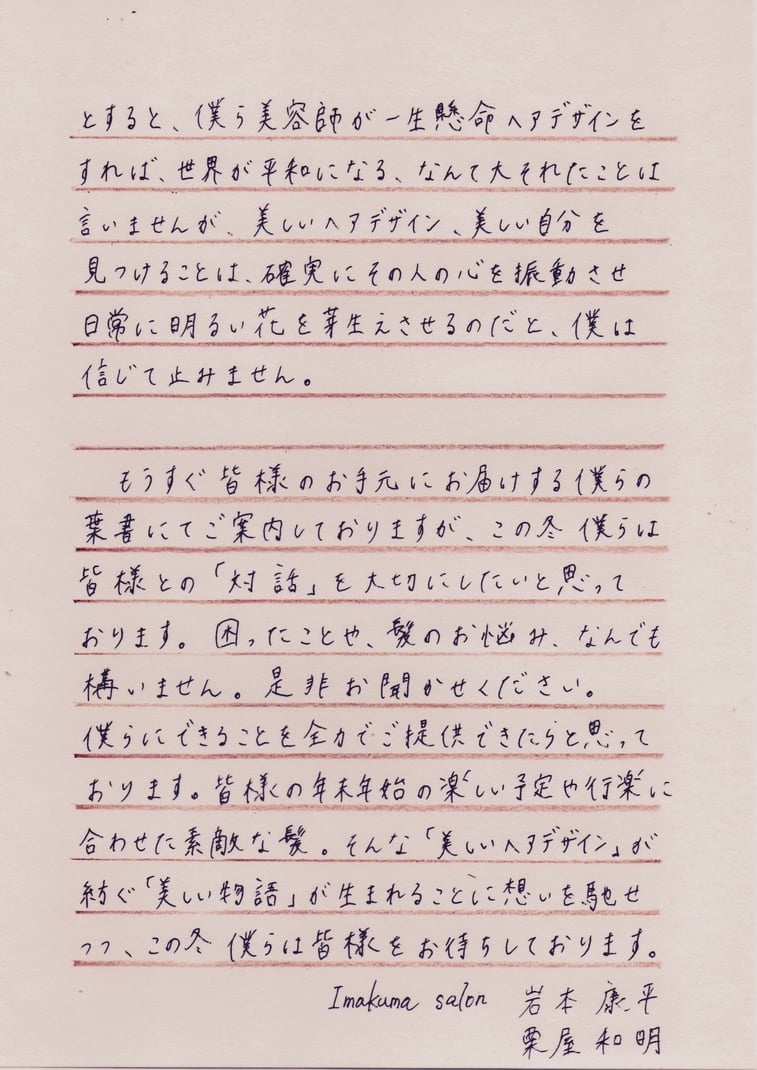 とすると、僕ら美容師が一生懸命ヘアデザインを
すれば、世界が平和になる、なんて大それたことは
言いませんが、美しいヘアデザイン、美しい自分を
見つけることは、確実にその人の心を振動させ
日常に明るい花を芽生えさせるのだと、僕は
信じて止みません。
もうすぐ皆様のお手元にお届けする僕らの
葉書にてご案内しておりますが、この冬僕らは
皆様との「対話」を大切にしたいと思って
おります。困ったことや、髪のお悩み、なんでも
構いません。是非お聞かせください。
僕らにできることを全力でご提供できたらと思って
おります。皆様の年末年始の楽しい予定や行楽に
合わせた素敵な髪。そんな「美しいヘアデザイン」が
紡ぐ「美しい物語」が生まれることに想いを馳せ
つつ、この冬僕らは皆様をお待ちしております。
Imakuma salon 岩本 康平
栗屋 和明